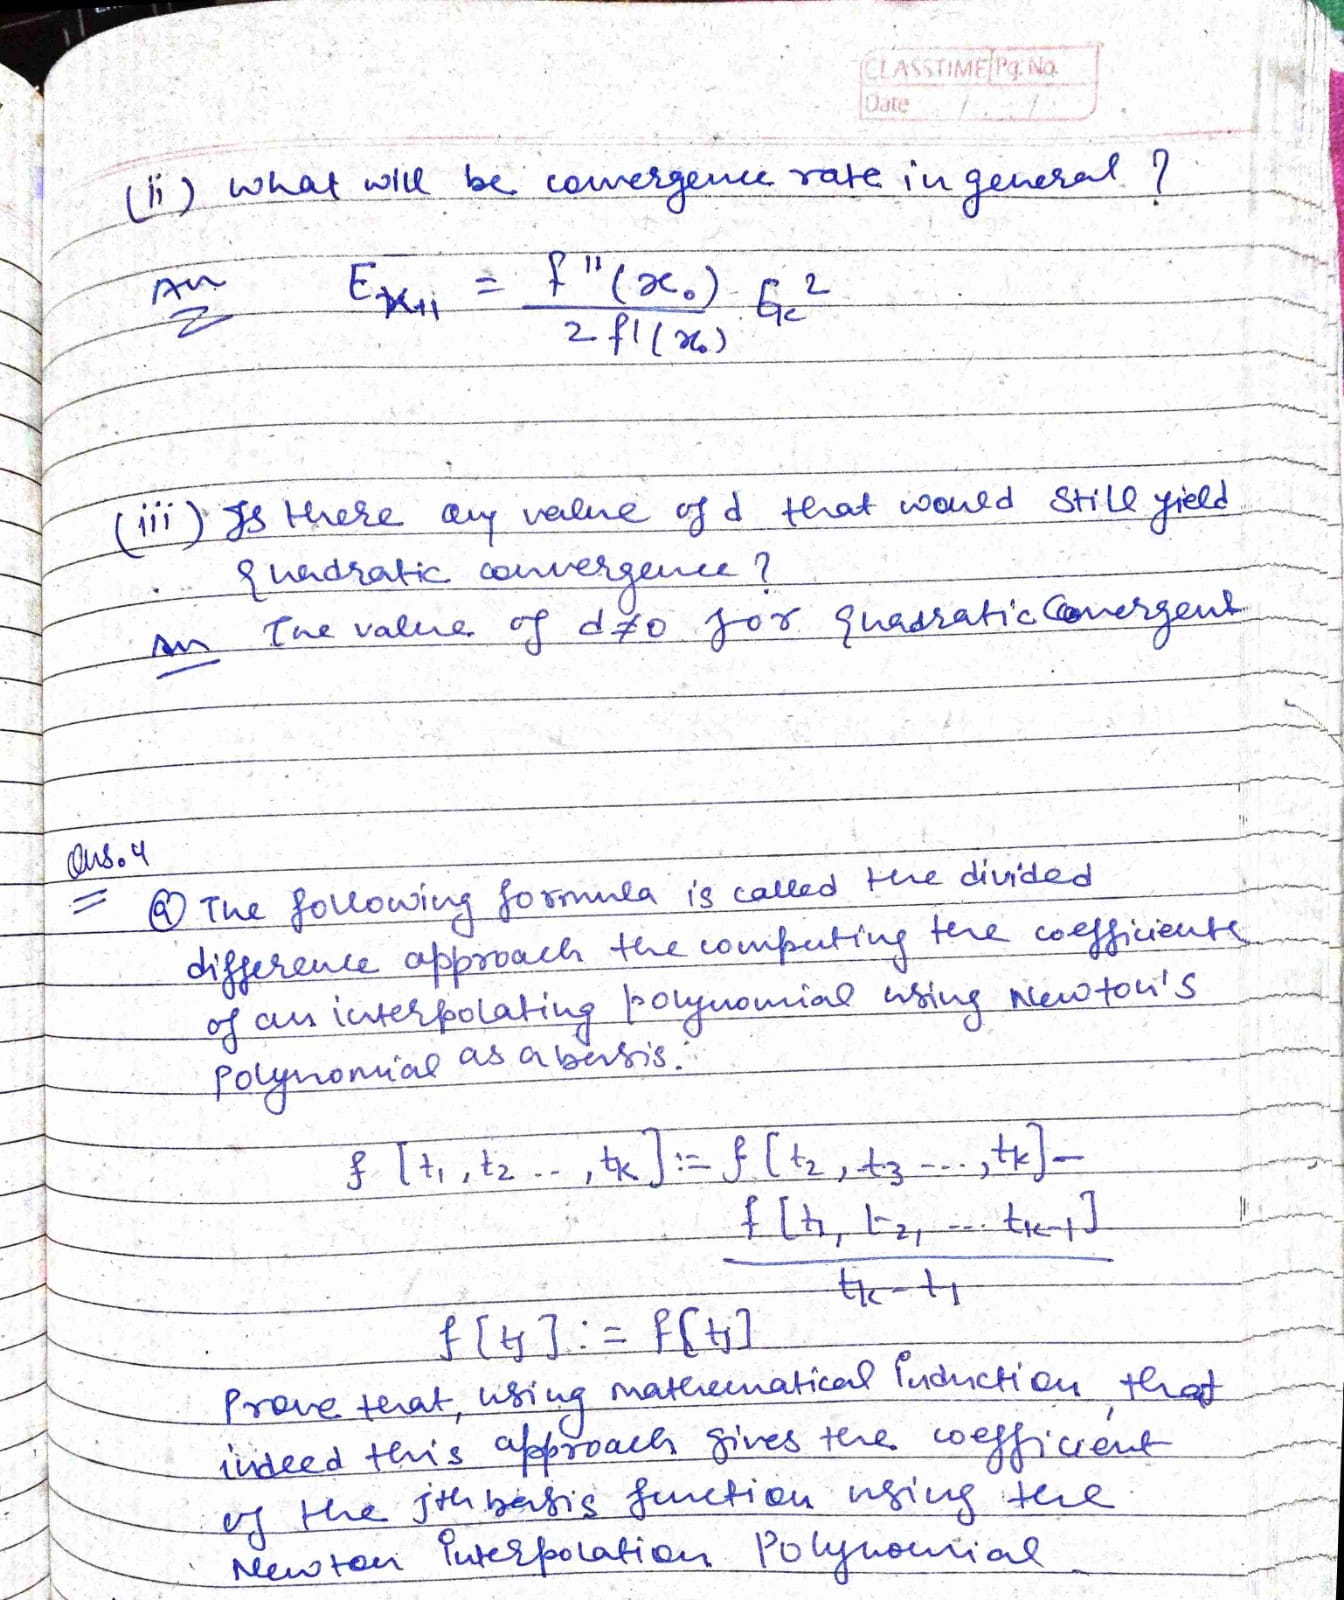 CLASSTIME Pg. No.
Date / /
(ii) what will be convergence rate in general ?
An E_{k+1} = f''(x₀) E_k²
2 f'(x₀)
(iii) Is there any value of d that would still yield
quadratic convergence ?
An The value of d≠0 for quadratic Convergent
Qus.4
(a) The following formula is called the divided
difference approach the computing the coefficients
of an interpolating polynomial using Newton's
polynomial as a basis.
f [t₁, t₂ .. , tk] := f [t₂, t₃ ...., tk] -
f [t₁, t₂, ... tk-1]
tk - t₁
f [tj] := f[tj]
Prove that, using mathematical induction, that
indeed this approach gives the coefficient
of the jth basis function using the
Newton interpolation Polynomial